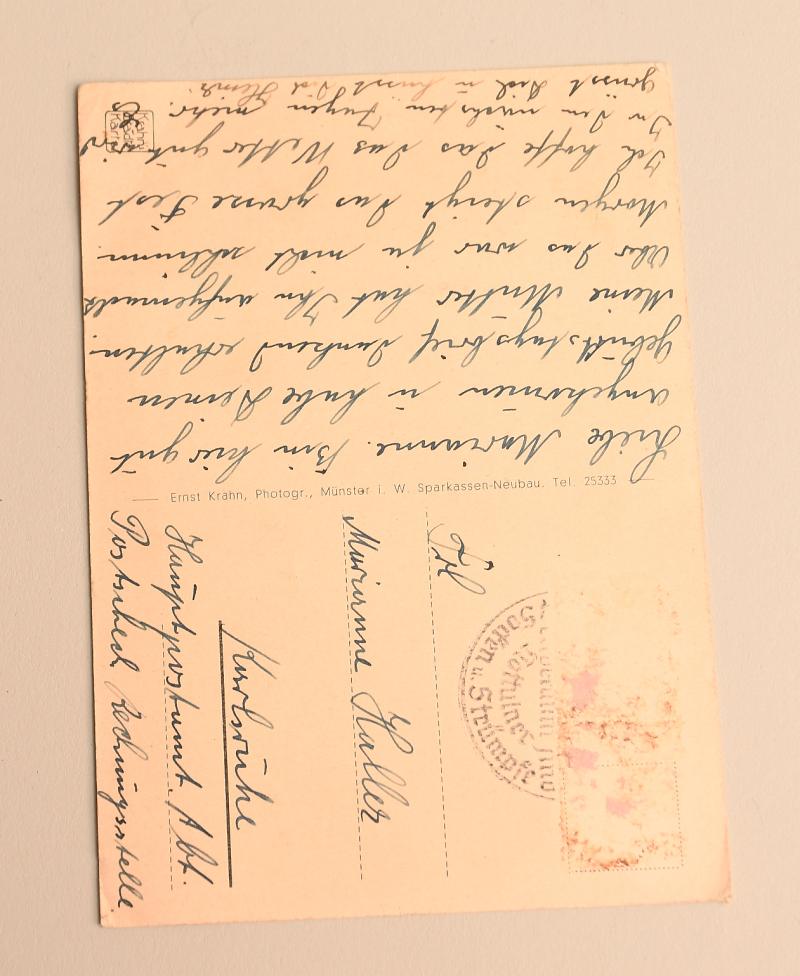 Liebe Marianne. Bin hier gut
angekommen u habe Deinen
Geburtstagsbrief dankend erhalten.
Meine Mutter hat Ihn aufgemacht
Aber das war ja nicht schlimm
Morgen steigt das grosse Fest
Ich hoffe das das Wetter gut
In den nächsten Tagen mehr.
Grüsst Dich u küsst Dich
Krahn
Karte
Ernst Krahn, Photogr., Münster i. W. Sparkassen-Neubau. Tel. 25333
Frl
Marianne Haller
Karlsruhe
Hauptpostamt. Abt.
Postscheck Rechnungsstelle.
Nottulner
Socken u. Strümpfe
sind